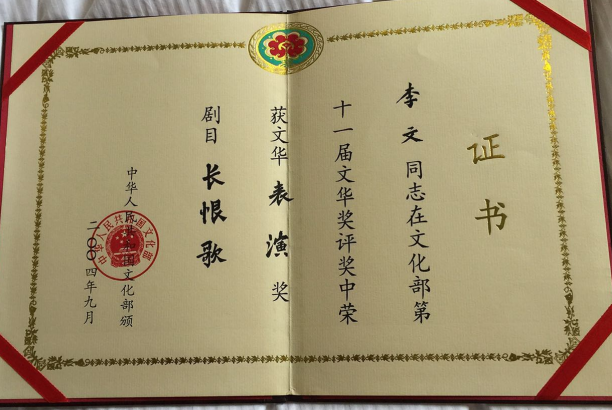 证书
李文同志在文化部第
十一届文华奖评奖中荣
获文华表演奖
剧目 长恨歌
中华人民共和国文化部颁
二〇〇四年九月
中华人民共和国文化部